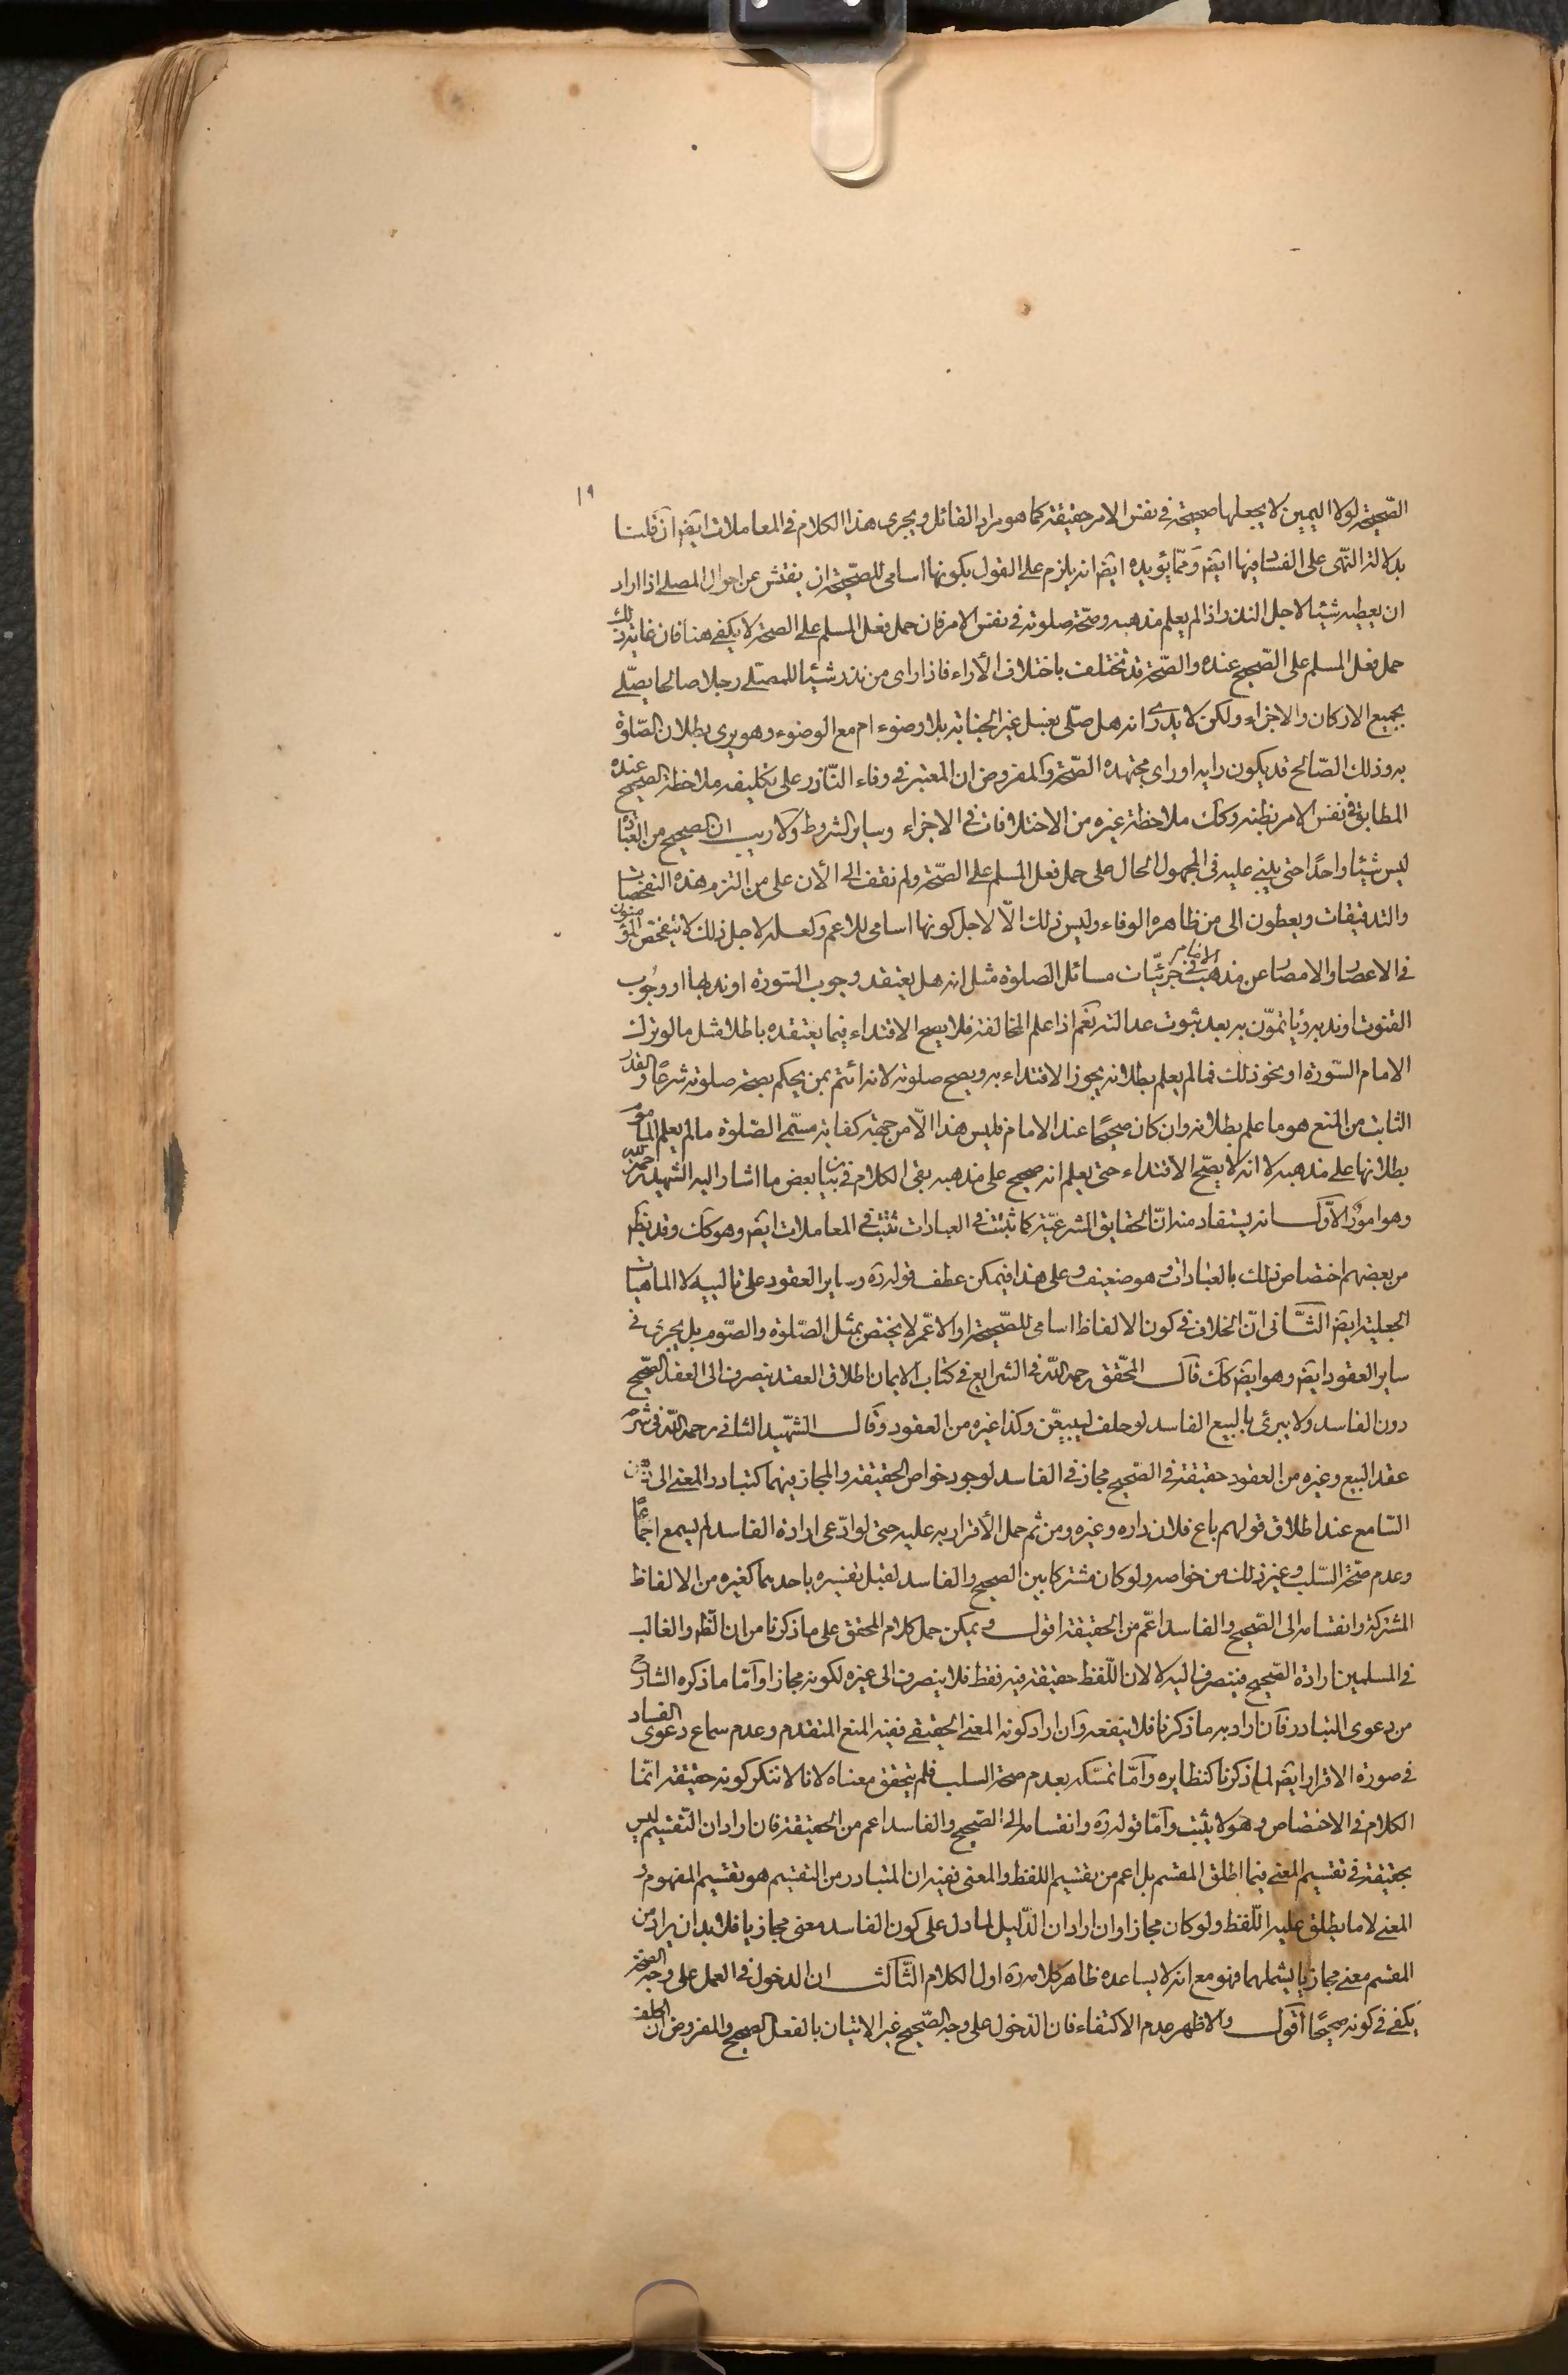 ١٩
الصّحيحة لولا اليمين لا يجعلها صحيحة في نفس الامر حقيقة كما هو مراد القائل ويجرى هذا الكلام في المعاملات ايض ان قلنا
بدلالة النّهى على الفساد فيها ايض وممّا يؤيده ايض انه يلزم على القول بكونها اسامى للصّحيحة ان يفتش عن احوال المصلى اذا اراد
ان يعطيه شيئا لاجل النذر اذا لم يعلم مذهبه وصحّة صلوته في نفس الامر فان حمل فعل المسلم على الصحة لا يكفى هنا فان غاية ذلك
حمل فعل المسلم على الصّحيح عنده والصّحة قد تختلف باختلاف الأراء فاذا راى من نذر شيئا للمصلى رجلا صالحا يصلّى
بجميع الاركان والاجزاء ولكن لا يدرى انه هل صلّى بغسل غير الجنابة بلا وضوء ام مع الوضوء وهو يرى بطلان الصّلوة
به وذلك الصّالح قد يكون رايه او راى مجتهده الصّحة والمفروض ان المعتبر في وفاء النّاذر على تكليفه ملاحظة الصحيح عنده
المطابق في نفس الامر بظنه وكك ملاحظة غيره من الاختلافات في الاجزاء وساير الشروط ولا ريب ان الصحيح من العبادة
ليس شيئا واحدًا حتى يبنى عليه في المجهول الحال على حمل فعل المسلم على الصّحة ولم نقف الى الأن على من التزم هذه التفحصات
والتدقيقات ويعطون الى من ظاهره الوفاء وليس ذلك الّا لاجل كونها اسامى للاعم ولعله لاجل ذلك لا يتفحص المؤمنون
في الاعصار والامصار عن مذهب الامام في جزئيّات مسائل الصلوة مثل انه هل يعتقد وجوب السّورة او ندبها او وجُوب
القنوت او ندبه ويأتمّون به بعد ثبوت عدالته نعم اذا علم المخالفة فلا يصح الاقتداء فيما يعتقده باطلا مثل ما لو ترك
الامام السّورة او نحو ذلك فما لم يعلم بطلانه يجوز الاقتداء به ويصح صلوته لانه ائتم بمن يحكم بصحة صلوته شرعًا والقدر
الثابت من المنع هو ما علم بطلانه وان كان صحيحًا عند الامام فليس هذا الّا من جهة كفاية مسمّى الصّلوة ما لم يعلم المأموم
بطلانها على مذهبه لا انه لا يصّح الاقتداء حتى يعلم انه صحيح على مذهبه بقى الكلام في بيان بعض ما اشار اليه الشهيد رحمه الله
وهو امورٌ الأوّل انه يستفاد منه انّ الحقايق الشرعيّة كما ثبتت في العبادات تثبت في المعاملات ايض وهو كك وقد يظهر
من بعضهم اختصاص ذلك بالعبادات وهو ضعيف وعلى هذا فيمكن عطف قوله ره وساير العقود على تاليه لا الماهيات
الجعلية ايض الثّانى انّ الخلاف في كون الالفاظ اسامى للصّحيحة او الاعّم لا يختص بمثل الصّلوة والصّوم بل يجرى في
ساير العقود ايض وهو ايض كك قال المحّقق رحمه اللّه في الشرايع في كتاب الايمان اطلاق العقد ينصرف الى العقد الصّحيح
دون الفاسد ولا يبرئ بالبيع الفاسد لو حلف ليبيعّن وكذا غيره من العقود وقال الشهّيد الثانى رحمه اللّه في شرحه
عقد البيع وغيره من العقود حقيقة في الصّحيح مجاز في الفاسد لوجود خواص الحقيقة والمجاز فيهما كتبادر المعنى الى ذهن
السّامع عند اطلاق قولهم باع فلان داره وغيره ومن ثم حمل الأقرار به عليه حتى لو ادّعى ارادة الفاسد لم يسمع اجماعًا
وعدم صحّة السّلب وغير ذلك من خواصه ولو كان مشتركا بين الصحيح والفاسد لقبل تفسيره باحدهما كغيره من الالفاظ
المشتركة وانقسامه الى الصّحيح والفاسد اعّم من الحقيقة اقول ويمكن حمل كلام المحقق على ما ذكرنا من ان الظّه والغالب
في المسلمين ارادة الصّحيح فينصرف اليه لا لان اللّفظ حقيقة فيه فقط فلا ينصرف الى غيره لكونه مجازا وامّا ما ذكره الشارح
من دعوى التبادر فان اراد به ما ذكرنا فلا ينفعه وان اراد كونه المعنى الحقيقى ففيه المنع المتقدم وعدم سماع دعوى الفساد
في صورة الاقرار ايض لما ذكرنا كنظايره وامّا تمسّكه بعدم صحة السلب فلم يتحقق معناه لانا لا ننكر كونه حقيقة انّما
الكلام في الاختصاص وهو لا يثبت وامّا قوله ره وانقسامه الى الصّحيح والفاسد اعم من الحقيقة فان اراد ان التّقسيم ليس
بحقيقة في تقسيم المعنى فيما اطلق المقسم بل اعم من تقسيم اللفظ والمعنى ففيه ان المتبادر من التقسيم هو تقسيم المفهوم و
المعنى لا ما يطلق عليه اللّفظ ولو كان مجازا وان اراد ان الدّليل لما دل على كون الفاسد معنى مجازيا فلا بد ان يراد من
المقسم معنى مجازيا يشملهما فهو مع انه لا يساعده ظاهر كلامه ره اول الكلام الثّالث ان الدخول في العمل على وجه الصّحة
يكفى في كونه صحيحًا اقول والاظهر عدم الاكتفاء فان الدّخول على وجه الصّحيح غير الاتيان بالفعل الصحيح والمفروض ان الحلف